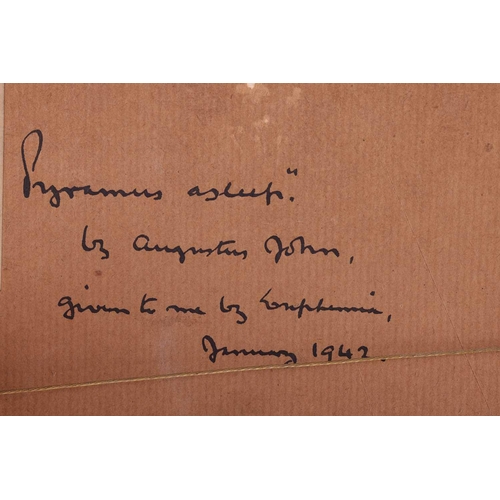 Pyramus asleep."
by Augustus John,
given to me by Euphemia,
January 1942.